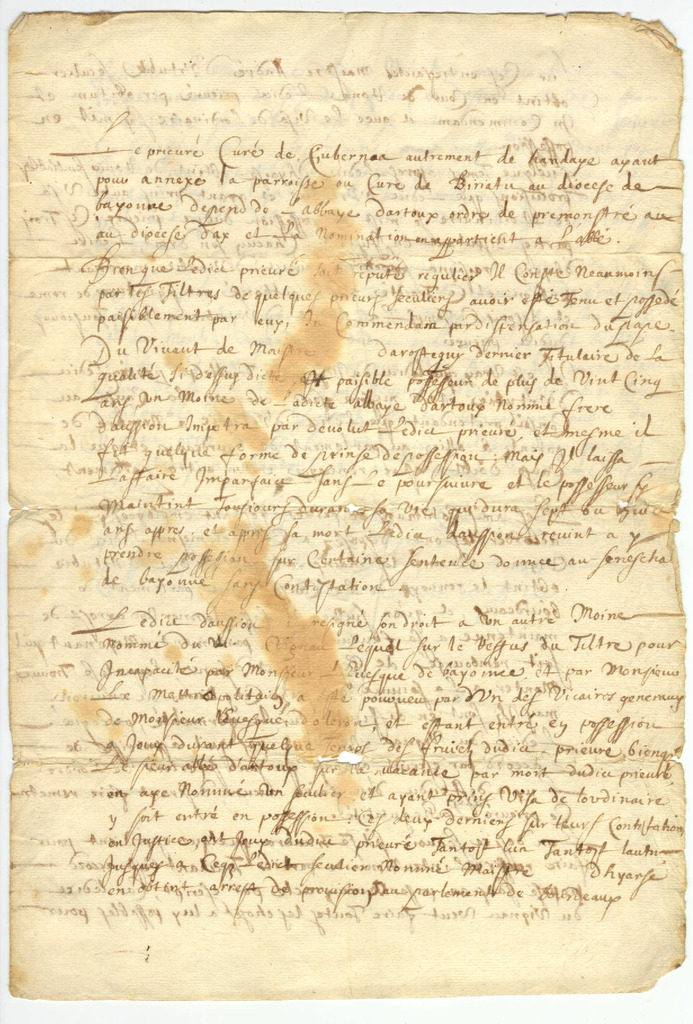 Le prieuré Curé de Gubernaa autrement de handaye ayant
pour annexe la parroisse ou Cure de Biriatu au diocese de
bayonne depend de l'abbaye dartoux ordre de premonstré au
au diocese d'ax et La Nomination en appartient a L'abbé.
Bien que Ledict prieuré soit reputé regulier Il Conste Neaumoins
par les Tiltres de quelques prieurs seculiers avoir esté Tenu et possedé
paisiblement par eux, In Commendam par dispensation du pape.
Du Vivant de Maistre darosteguy dernier Titulaire de la
qualité Si dessus dicte, Et paisible possesseur de plus de Vint Cinq
ans Un Moine de Ladicte abbaye d'artoux Nommé frere
daussion Impetra par devolut Ledict prieuré, et mesme il
fit quelque forme de prinse de possession, Mais Il laissa
L'affaire Imparfaict sans Le poursuivre et le possesseur sy
Maintint Tousjours durant sa Vie qui dura sept ou huict
ans appres, et apres sa mort Ledict daussion revint a y
prendre possession sur Certaine sentence donnee au senescha
de bayonne sans Contestation.
Ledict daussion resigné son droit a un autre Moine
Nommé du Vignau Lequel sur le Reffus du Tiltre pour
Incapacité par Monsieur L'evesque de bayonne et par Monsieur
Le Metropolitain a esté pourveu par Un des Vicaires generaux
de Monsieur L'evesque d'oloron, et estant entré en possession
a Jouy durant quelque Temps des fruicts dudict prieuré bienque
Le sieur abbé d'artoux sur la vacante par mort dudict prieuré
en aye Nommé un seculier et ayant pris Visa de Lordinaire
y soit entré en possession. Ces deux derniers sur leurs Contestation
en Justice ont Jouy dudict prieuré Tantost l'un Tantost lautre
Jusques a Ceque Ledict seculier Nommé Maistre dhyarse
en obtent arrest de provision au parlement de Bordeaux